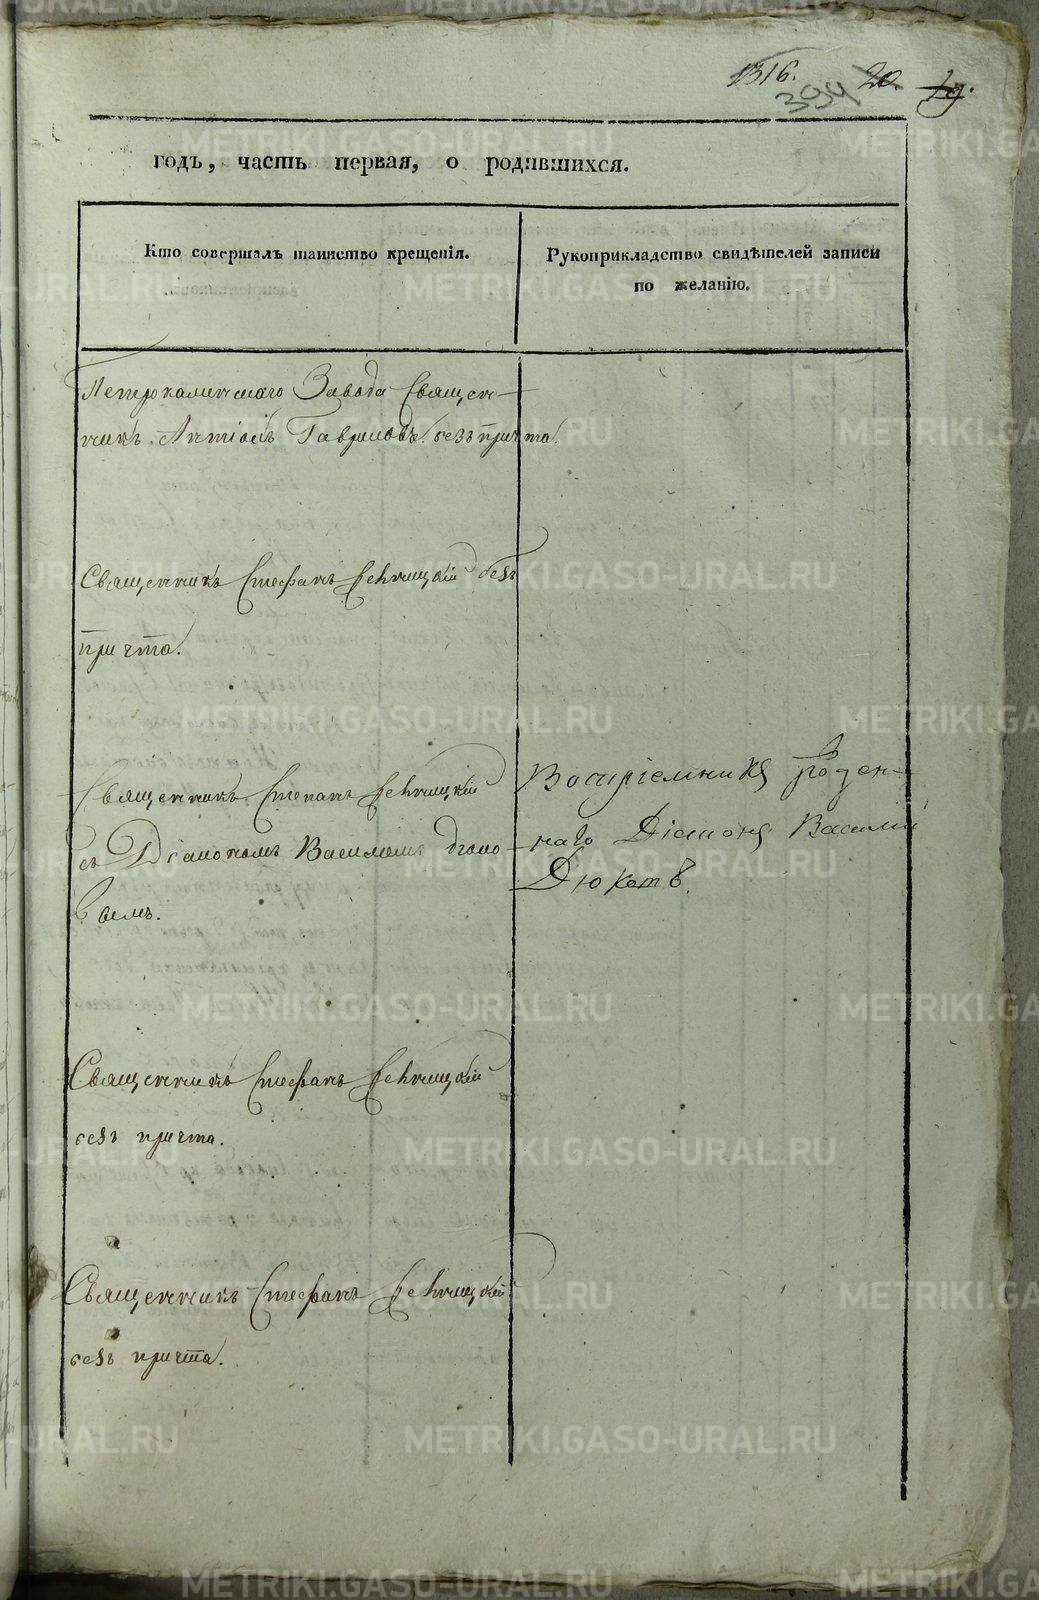 1316.
394 20. 19.
годъ, часть первая, о родившихся.
Кто совершалъ таинство крещенія.
Рукоприкладство свидѣтелей записи
по желанію.
Петрокаменскаго Завода Священ-
никъ Гавриловъ. безъ причта.
Священникъ Стефанъ безъ
причта.
Священникъ Стефанъ
съ Діакономъ Василіемъ
вымъ.
Воспріемникъ
Діаконъ Василій
Священникъ Стефанъ
безъ причта.
Священникъ Стефанъ
безъ причта.
METRIKI.GASO-URAL.RU